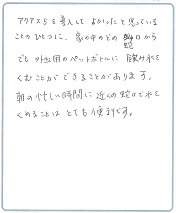 アクアス5を導入して よかったと思っている
ことのひとつに、家の中のどの蛇口から
でも 外出用のペットボトルに 飲み水を
くむことができることがあります。
朝の忙しい時間に 近くの蛇口で水を
くめることは とても便利です。